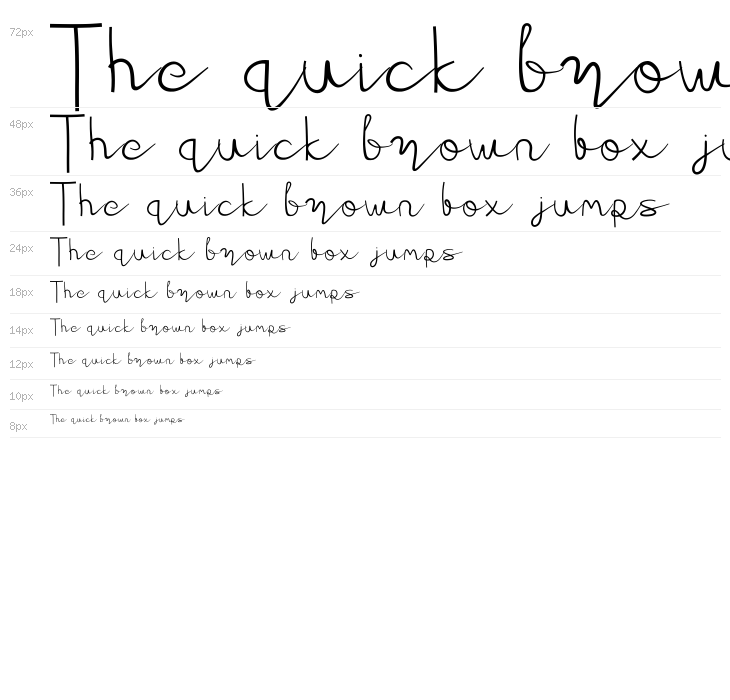 72px The quick brow
48px The quick brown box ju
36px The quick brown box jumps
24px The quick brown box jumps
18px The quick brown box jumps
14px The quick brown box jumps
12px The quick brown box jumps
10px The quick brown box jumps
8px The quick brown box jumps